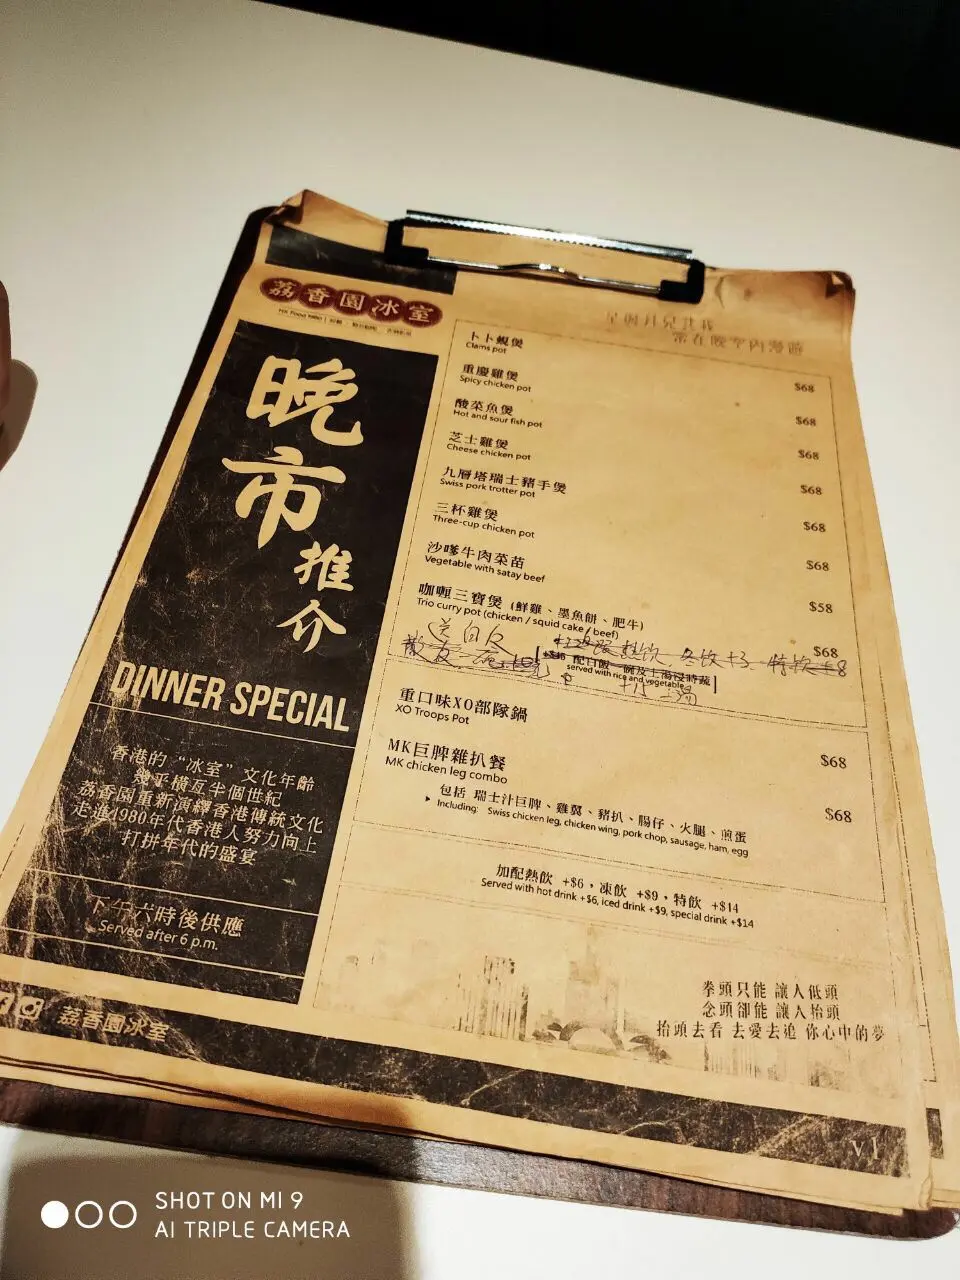 荔香園冰室
HK Food 1980
晚市推介
DINNER SPECIAL
香港的“冰室”文化年齡
幾乎橫亙半個世紀
荔香園重新演繹香港傳統文化
走進1980年代香港人努力向上
打拼年代的盛宴
下午六時後供應
Served after 6 p.m.
荔香園冰室
卜卜蜆煲 $68
Clams pot
重慶雞煲 $68
Spicy chicken pot
酸菜魚煲 $68
Hot and sour fish pot
芝士雞煲 $68
Cheese chicken pot
九層塔瑞士豬手煲 $68
Swiss pork trotter pot
三杯雞煲 $68
Three-cup chicken pot
沙嗲牛肉菜苗 $58
Vegetable with satay beef
咖喱三寶煲 (鮮雞、墨魚餅、肥牛) $68
Trio curry pot (chicken / squid cake / beef)
配白飯一碗及上湯浸時蔬
served with rice and vegetable
重口味XO部隊鍋 $68
XO Troops Pot
MK巨脾雜扒餐 $68
MK chicken leg combo
包括 瑞士汁巨脾、雞翼、豬扒、腸仔、火腿、煎蛋
Including: Swiss chicken leg, chicken wing, pork chop, sausage, ham, egg
加配熱飲 +$6，凍飲 +$9，特飲 +$14
Served with hot drink +$6, iced drink +$9, special drink +$14
拳頭只能 讓人低頭
念頭卻能 讓人抬頭
抬頭去看 去愛去追 你心中的夢
v1
SHOT ON MI 9
AI TRIPLE CAMERA